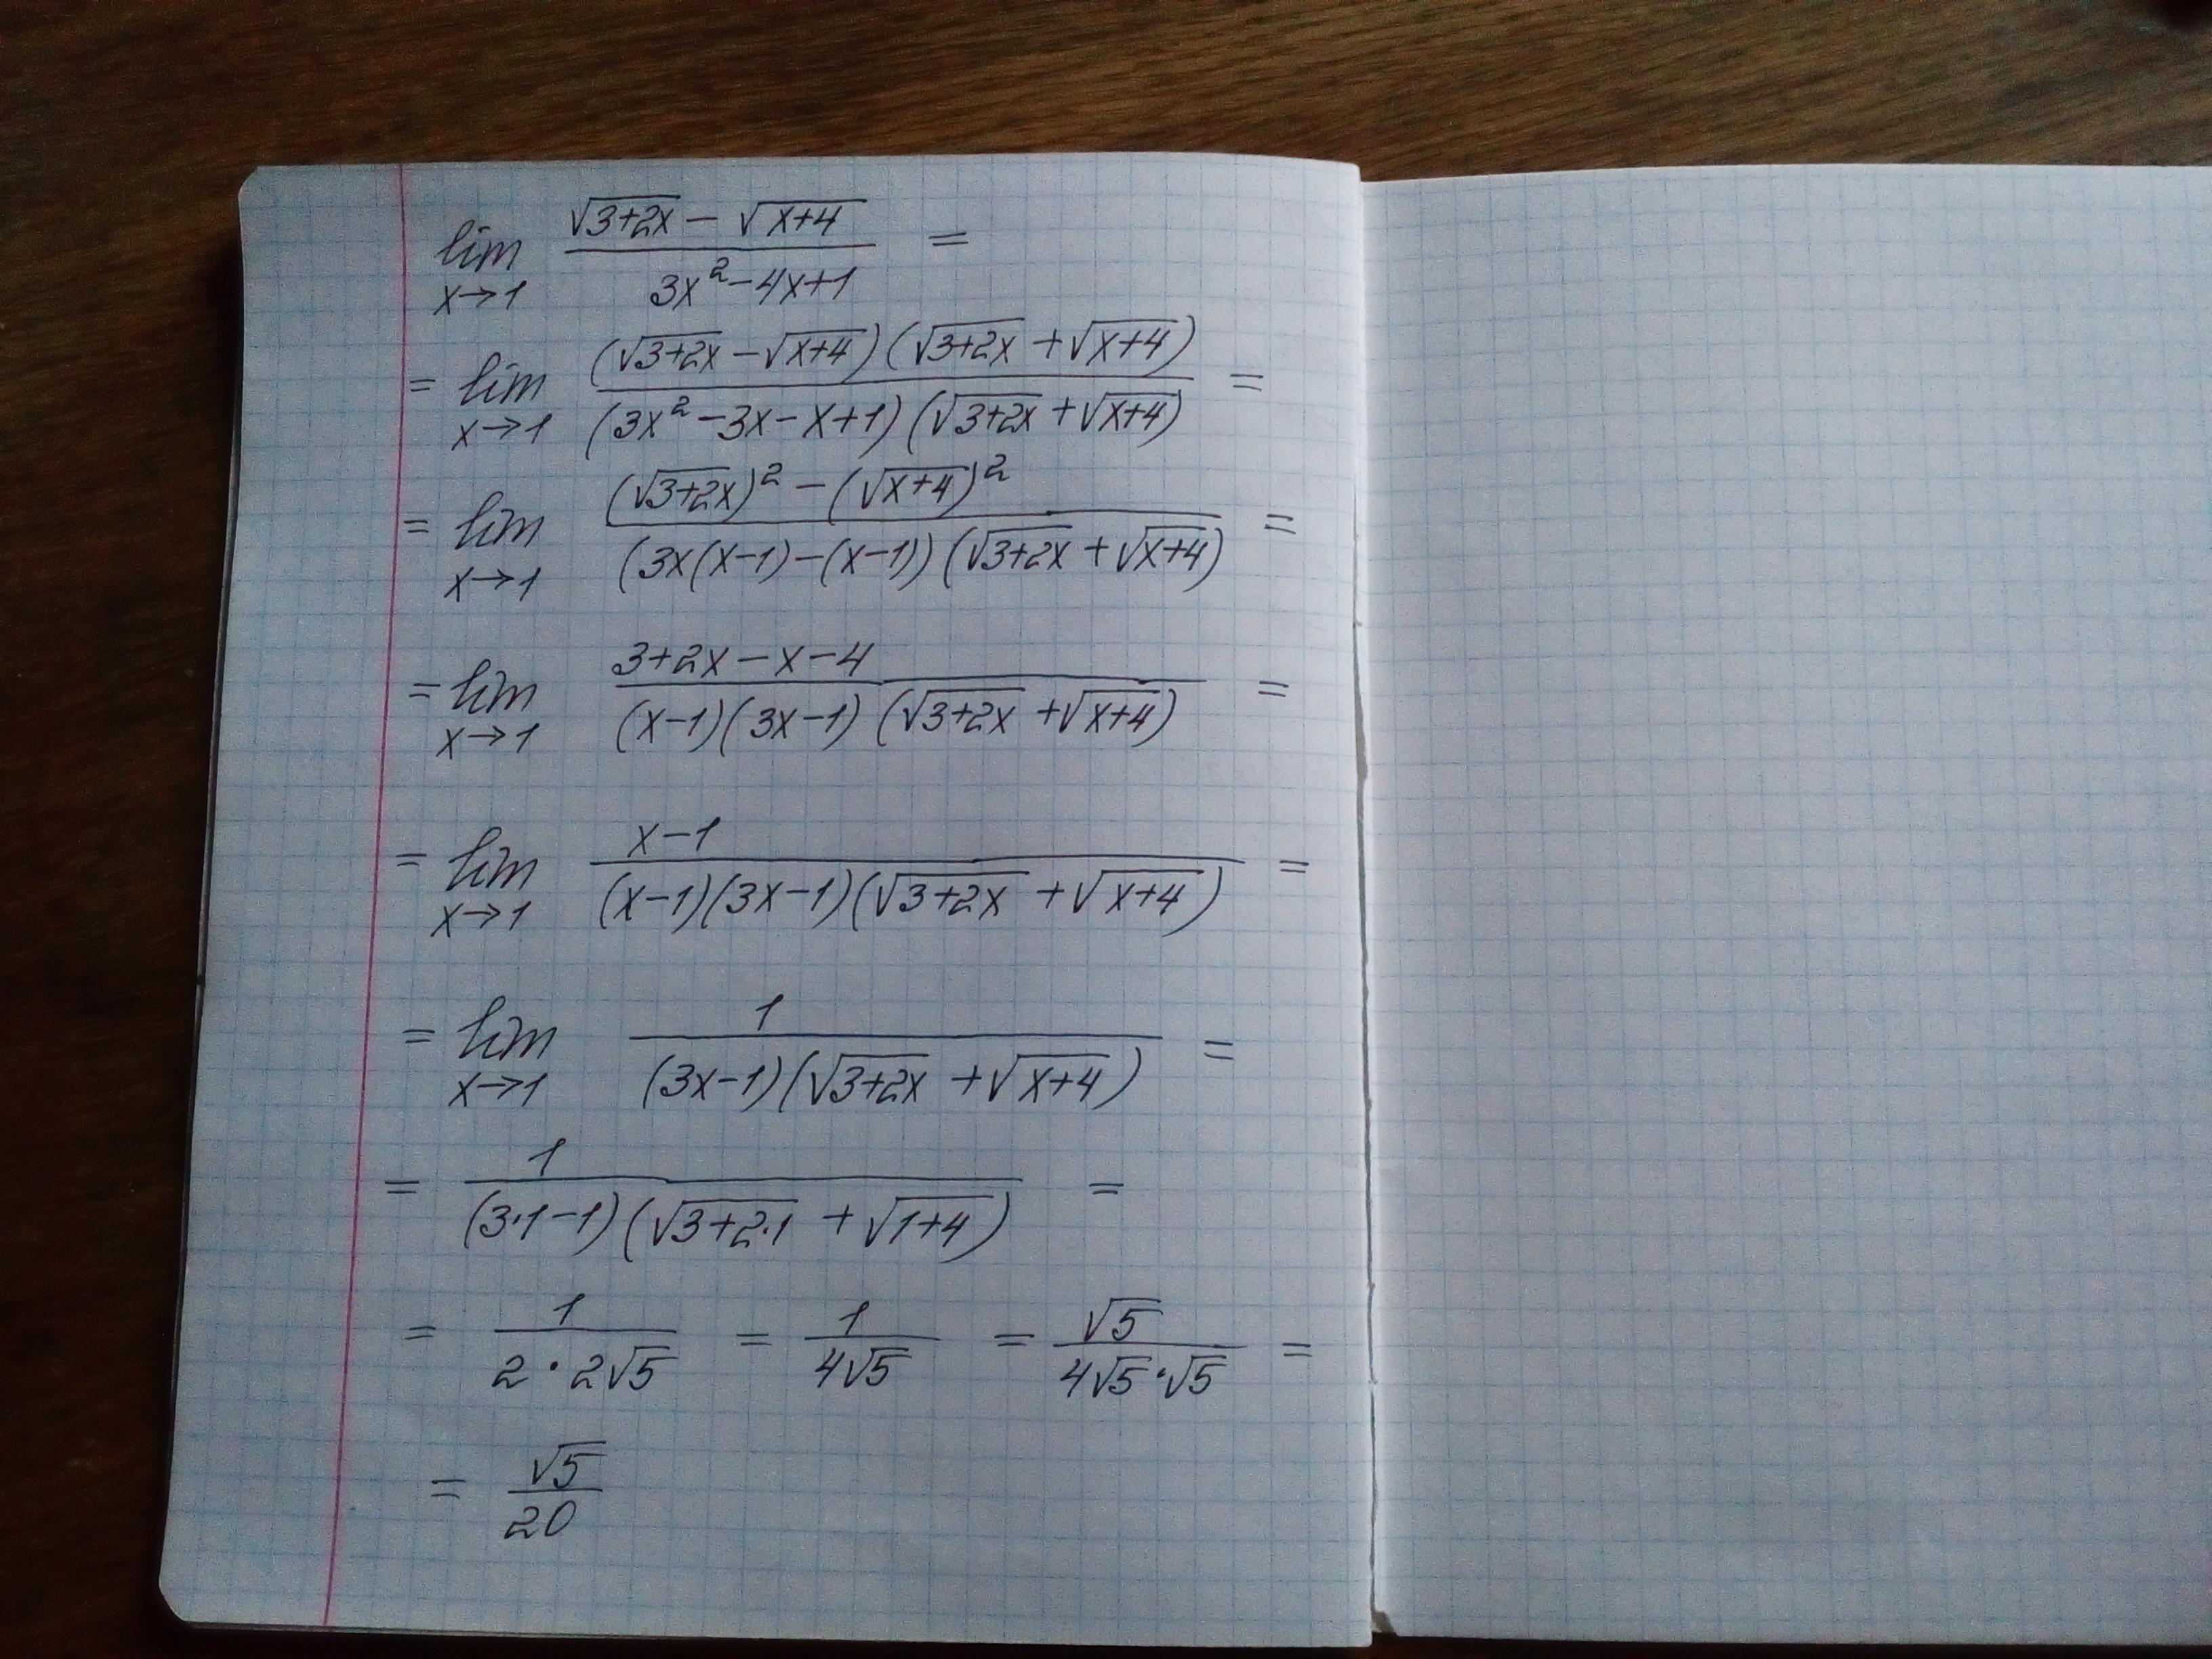 lim x→1 (√(3+2x) − √(x+4)) / (3x² − 4x + 1) =
= lim x→1 ((√(3+2x) − √(x+4)) (√(3+2x) + √(x+4))) / ((3x² − 3x − x + 1) (√(3+2x) + √(x+4))) =
= lim x→1 ((√(3+2x))² − (√(x+4))²) / ((3x(x−1) − (x−1)) (√(3+2x) + √(x+4))) =
= lim x→1 (3+2x − x − 4) / ((x−1)(3x−1) (√(3+2x) + √(x+4))) =
= lim x→1 (x−1) / ((x−1)(3x−1)(√(3+2x) + √(x+4))) =
= lim x→1 1 / ((3x−1)(√(3+2x) + √(x+4))) =
= 1 / ((3·1−1)(√(3+2·1) + √(1+4))) =
= 1 / (2 · 2√5) = 1 / (4√5) = √5 / (4√5·√5) =
= √5 / 20